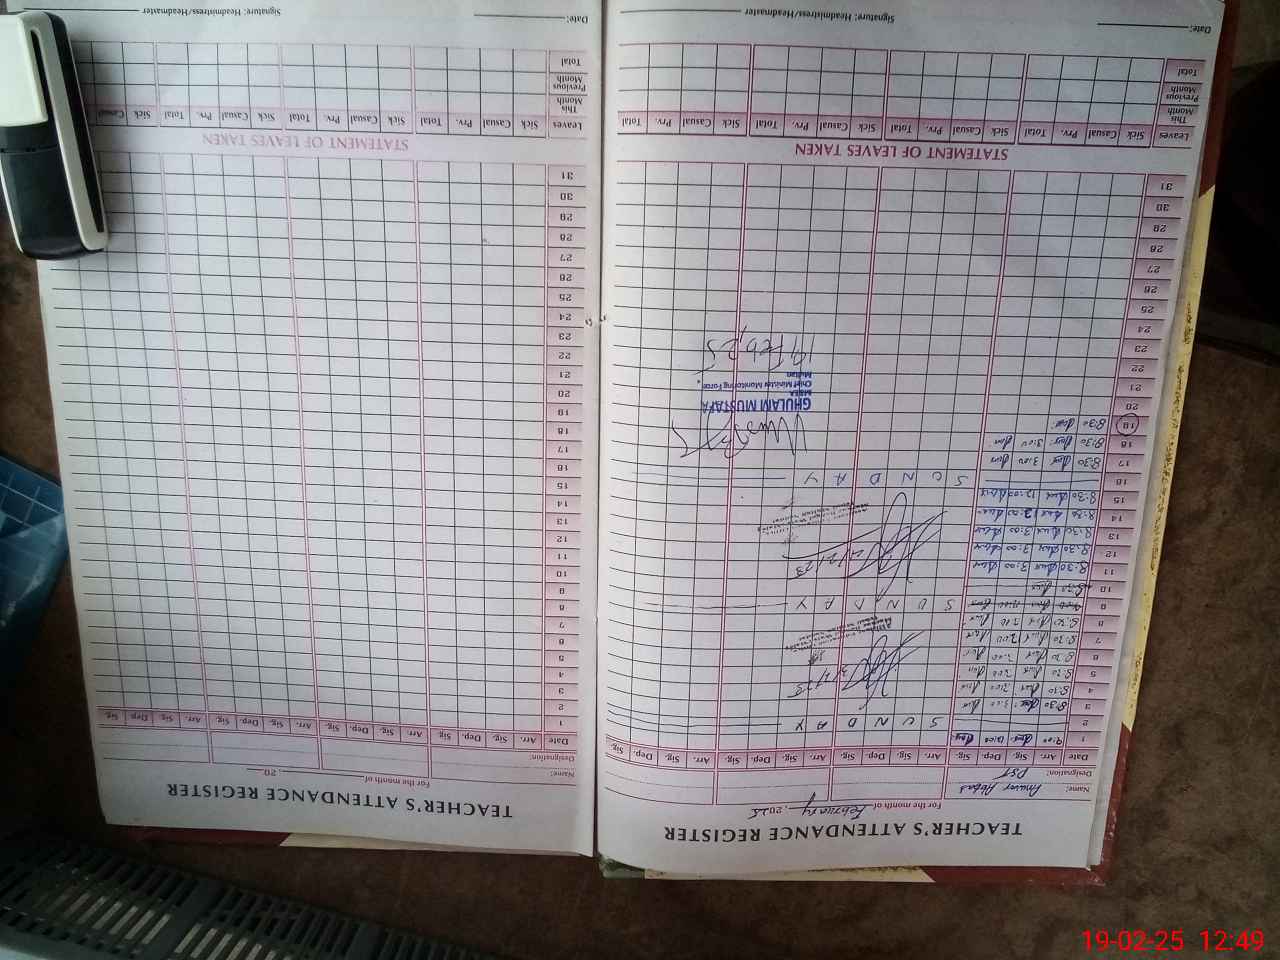 TEACHER'S ATTENDANCE REGISTER
For the month of February, 2025
Name: Anwar Abbas
Designation: PST
Date Arr. Sig. Dep. Sig. Arr. Sig. Dep. Sig. Arr. Sig. Dep. Sig. Arr. Sig. Dep. Sig.
1 9:00 12:00
2 SUNDAY
3 8:30 3:00
4 8:30 3:00
5 8:30 3:00
6 8:30 3:00
7 8:30 3:00
8 8:30 3:00
9 SUNDAY
10 8:30
11 8:30 3:00
12 8:30 3:00
13 8:30 3:00
14 8:30 3:00
15 8:30 12:00
16 SUNDAY
17 8:30 3:00
18 8:30 3:00
19 8:30
GHULAM MUSTAFA
MEA
Chief Ministry Monitoring Force
Multan
19 Feb, 25
20
21
22
23
24
25
26
27
28
29
30
31
STATEMENT OF LEAVES TAKEN
Leaves Sick Casual Prv. Total Sick Casual Prv. Total Sick Casual Prv. Total Sick Casual Prv. Total
This Month
Previous Month
Total
Date: Signature: Headmistress/Headmaster
TEACHER'S ATTENDANCE REGISTER
For the month of , 20
Name:
Designation:
Date Arr. Sig. Dep. Sig. Arr. Sig. Dep. Sig. Arr. Sig. Dep. Sig. Arr. Sig. Dep. Sig.
1
2
3
4
5
6
7
8
9
10
11
12
13
14
15
16
17
18
19
20
21
22
23
24
25
26
27
28
29
30
31
STATEMENT OF LEAVES TAKEN
Leaves Sick Casual Prv. Total Sick Casual Prv. Total Sick Casual Prv. Total Sick Casual
This Month
Previous Month
Total
Date: Signature: Headmistress/Headmaster
19-02-25 12:49